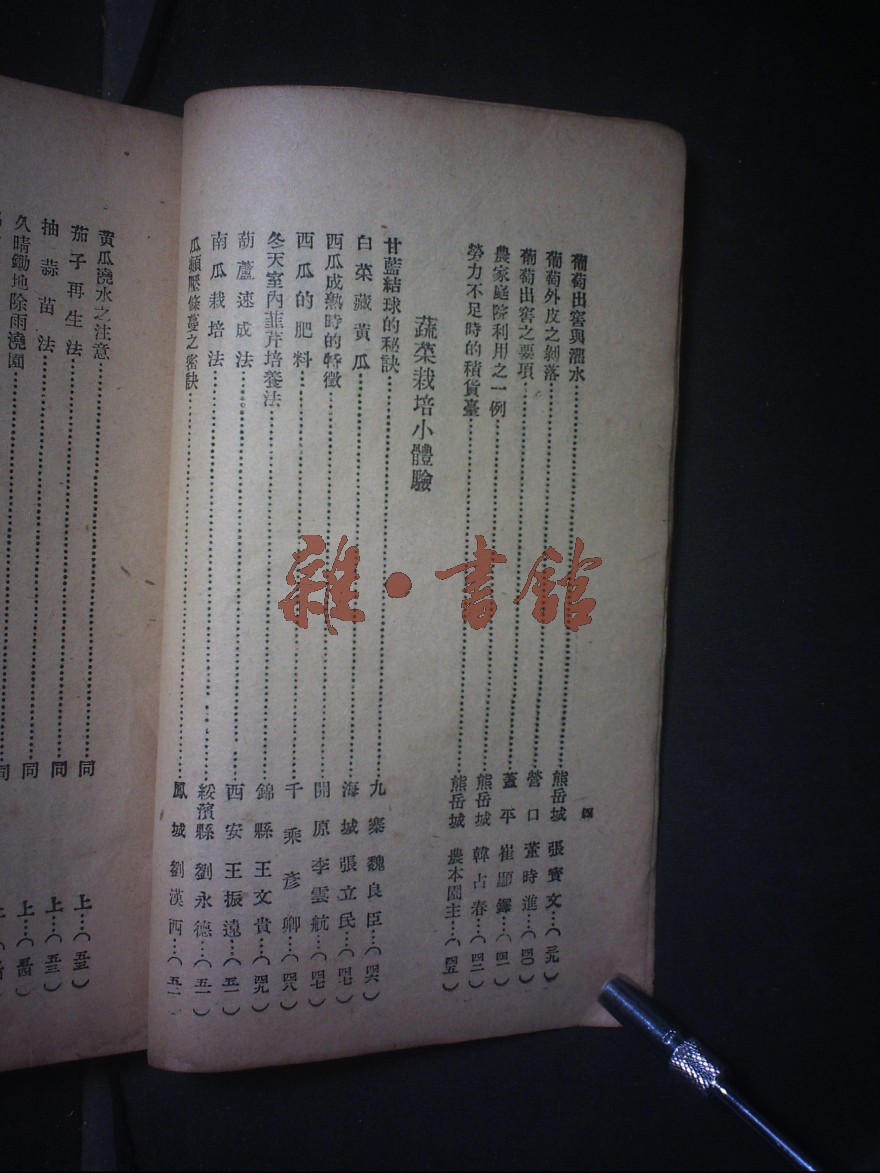 四
葡萄出窖與灌水……熊岳城 張寶文…(三九)
葡萄外皮之剝落……營口 董時進…(四〇)
葡萄出窖之要項……蓋平 崔顯鐸…(四一)
農家庭院利用之一例……熊岳城 韓占春…(四二)
勞力不足時的積貨臺……熊岳城 農本園主…(四五)
蔬菜栽培小體驗
甘藍結球的秘訣……九寨 魏良臣…(四六)
白菜藏黃瓜……海城 張立民…(四七)
西瓜成熟時的特徵……開原 李雲航…(四七)
西瓜的肥料……千乘彥卿…(四八)
冬天室內韮芹培養法……錦縣 王文貴…(四九)
葫蘆速成法……西安 王振遠…(五一)
南瓜栽培法……綏濱縣 劉永德…(五一)
瓜類壓條蔓之密訣……鳳城 劉漢西…(五
黃瓜澆水之注意……同 上…(五三)
茄子再生法……同 上…(五三)
抽蒜苗法……同 上…(五四)
久晴鋤地除雨澆園……同 上
雜·書館